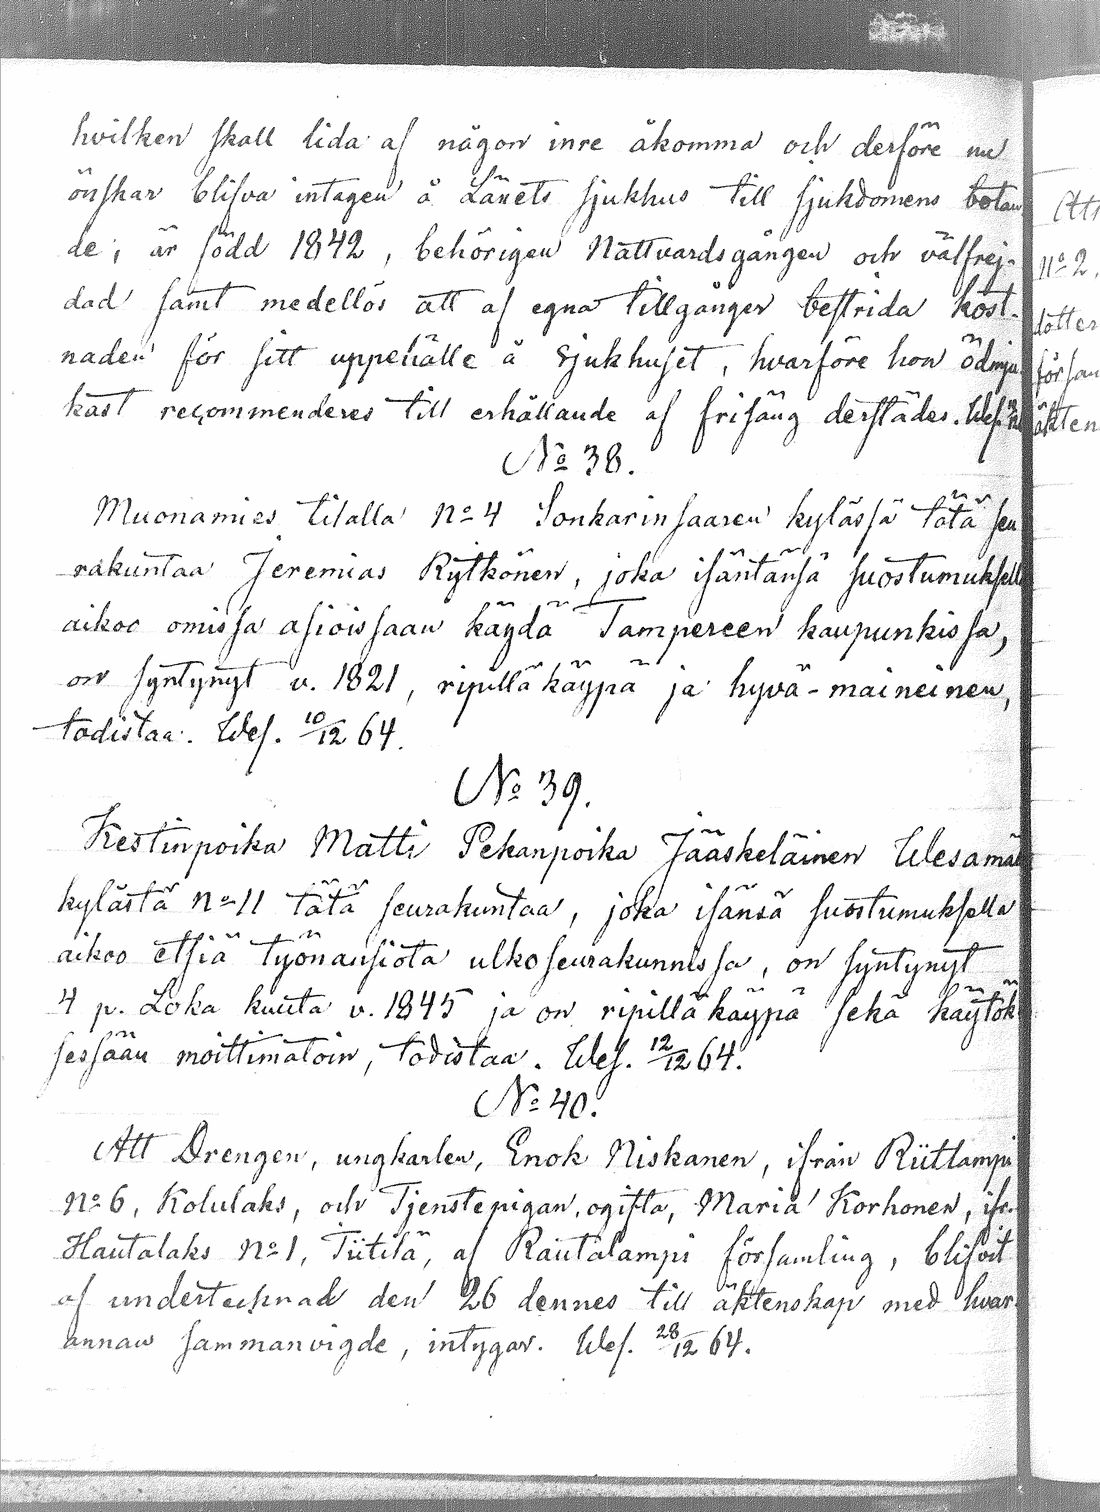 hvilken skall lida af någon inre åkomma och derföre nu
önskar blifva intagen å Länets sjukhus till sjukdomens botan-
de, är född 1842, behörigen Nattvardsgången och välfrej-
dad samt medellös att af egna tillgångar bestrida kost-
naden för sitt uppehälle å Sjukhuset, hvarföre hon ödmju-
kast recommenderes till erhållande af frisäng derstädes. Wes.
No 38.
Muonamies tilalla No 4 Sonkarinsaaren kylässä tätä seu
rakuntaa Jeremias Rytkönen, joka isäntänsä suostumuksella
aikoo omissa asioissaan käydä Tampereen kaupunkissa,
on syntynyt v. 1821, ripilläkäypä ja hyvä-maineinen,
todistaa. Wes. 10/12 64.
No 39.
Kestinpoika Matti Pekanpoika Jääskeläinen Wesamäen
kylästä No 11 tätä seurakuntaa, joka isänsä suostumuksella
aikoo etsiä työnansiota ulkoseurakunnissa, on syntynyt
4 p. Loka kuuta v. 1845 ja on ripilläkäypä sekä käytök
sessään moittimatoin, todistaa. Wes. 12/12 64.
No 40.
Att Drengen, ungkarlen, Enok Niskanen, ifrån Riitlampi
No 6, Kolulaks, och Tjenstepigan, ogifta, Maria Korhonen, ifr.
Hautalaks No 1, Tiitilä, af Rautalampi församling, blifvit
af undertecknad den 26 dennes till äktenskap med hvar-
annan sammanvigde, intygar. Wes. 28/12 64.
No 2,
dotter
försam
äkten